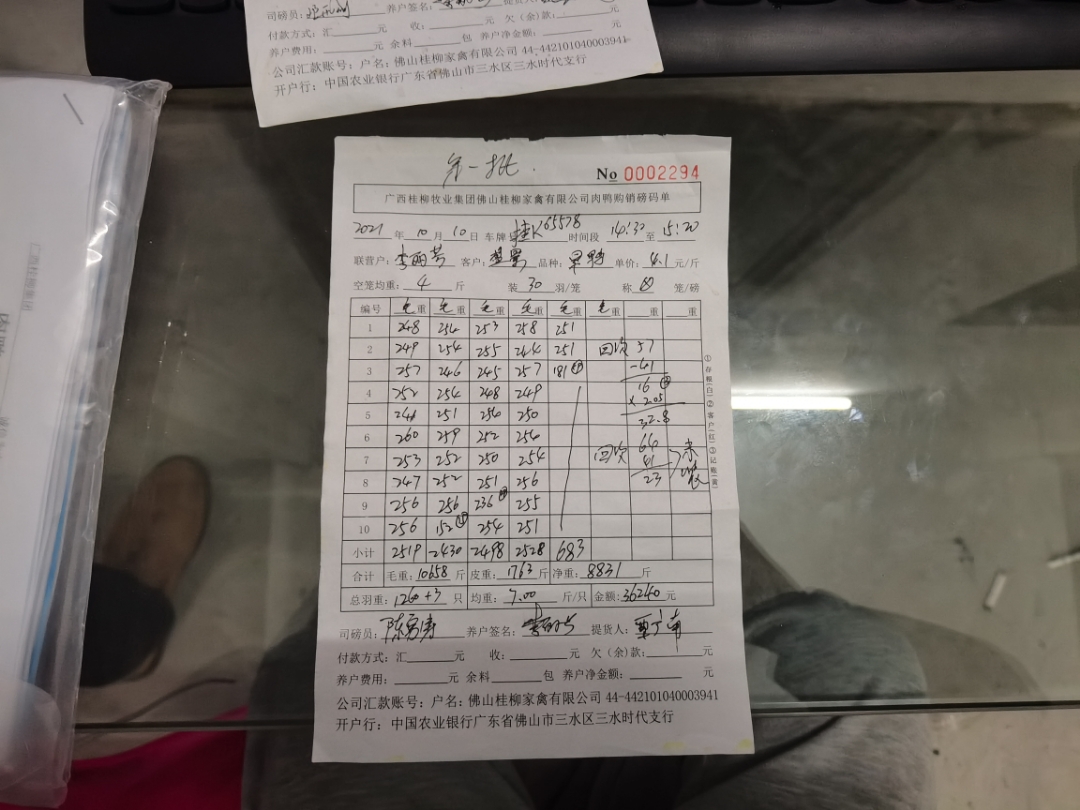 养户签名：
付款方式：汇 元 收： 元 欠（余）款： 元
养户费用： 元 余料 包 养户净金额： 元
公司汇款账号：户名：佛山桂柳家禽有限公司 44-442101040003941
开户行：中国农业银行广东省佛山市三水区三水时代支行
第一批.
No 0002294
广西桂柳牧业集团佛山桂柳家禽有限公司肉鸭购销磅码单
2021 年 10 月 10 日 车牌 桂K65578 时间段 14:30 至 15:20
联营户：李丽芳 客户： 品种： 单价：4.1 元/斤
空笼均重：4 斤 装 30 羽/笼 称 笼/磅
编号 毛重 毛重 毛重 毛重 毛重 毛重 重 重
1 248 254 253 258 251
2 249 254 255 244 251 回收 57
3 257 246 245 257 181 -41
4 252 254 248 249 16
× 2.05
5 244 251 254 250 32.8
6 260 259 252 254 回收 64
7 253 252 250 254 41 未装
8 247 252 251 256 23
9 256 256 236 255
10 256 152 254 251
小计 2519 2430 2498 2528 683
合计 毛重：10658 斤 皮重：1763 斤 净重：8831 斤
总羽重：1260+3 只 均重：7.00 斤/只 金额：36240 元
司磅员： 养户签名：李丽芳 提货人：
付款方式：汇 元 收： 元 欠（余）款： 元
养户费用： 元 余料 包 养户净金额： 元
公司汇款账号：户名：佛山桂柳家禽有限公司 44-442101040003941
开户行：中国农业银行广东省佛山市三水区三水时代支行
①存根(白)②客户(红)③记账(黄)